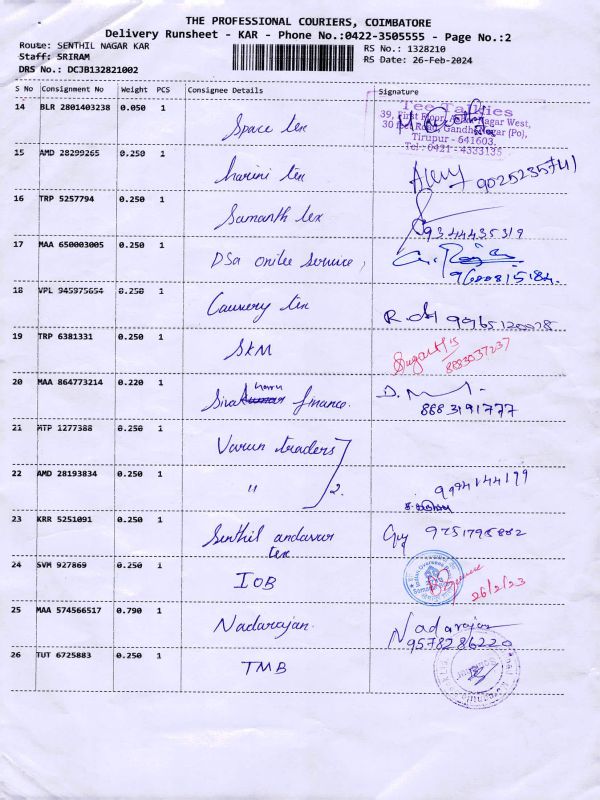 THE PROFESSIONAL COURIERS, COIMBATORE
Delivery Runsheet - KAR - Phone No.:0422-3505555 - Page No.:2
Route: SENTHIL NAGAR KAR
RS No.: 1328210
Staff: SRIRAM
RS Date: 26-Feb-2024
DRS No.: DCJB132821002
S No Consignment No Weight PCS Consignee Details Signature
14 BLR 2801403238 0.050 1
Space tex
Tee Talkies
39, First Floor, Nagar West,
30 Feet Road, Gandhi Nagar (Po),
Tirupur - 641603.
Tel : 0421 - 4333135
15 AMD 28299265 0.250 1
harini tex
9025235741
16 TRP 5257794 0.250 1
Samanth tex
9344435319
17 MAA 650003005 0.250 1
DSa online Service,
9600815184.
18 VPL 945975654 0.250 1
Cauvery tex
19 TRP 6381331 0.250 1
SKM
8883037237
20 MAA 864773214 0.220 1
Siva finance.
8883191777
21 MTP 1277388 0.250 1
Varun traders
22 AMD 28193834 0.250 1
" 2.
9994144199
23 KRR 5251091 0.250 1
Senthil andavar
tex
Guy 9751795802
24 SVM 927869 0.250 1
IOB
26/2/23
25 MAA 574566517 0.790 1
Nadarajan.
Nadarajan
9578286220
26 TUT 6725883 0.250 1
TMB